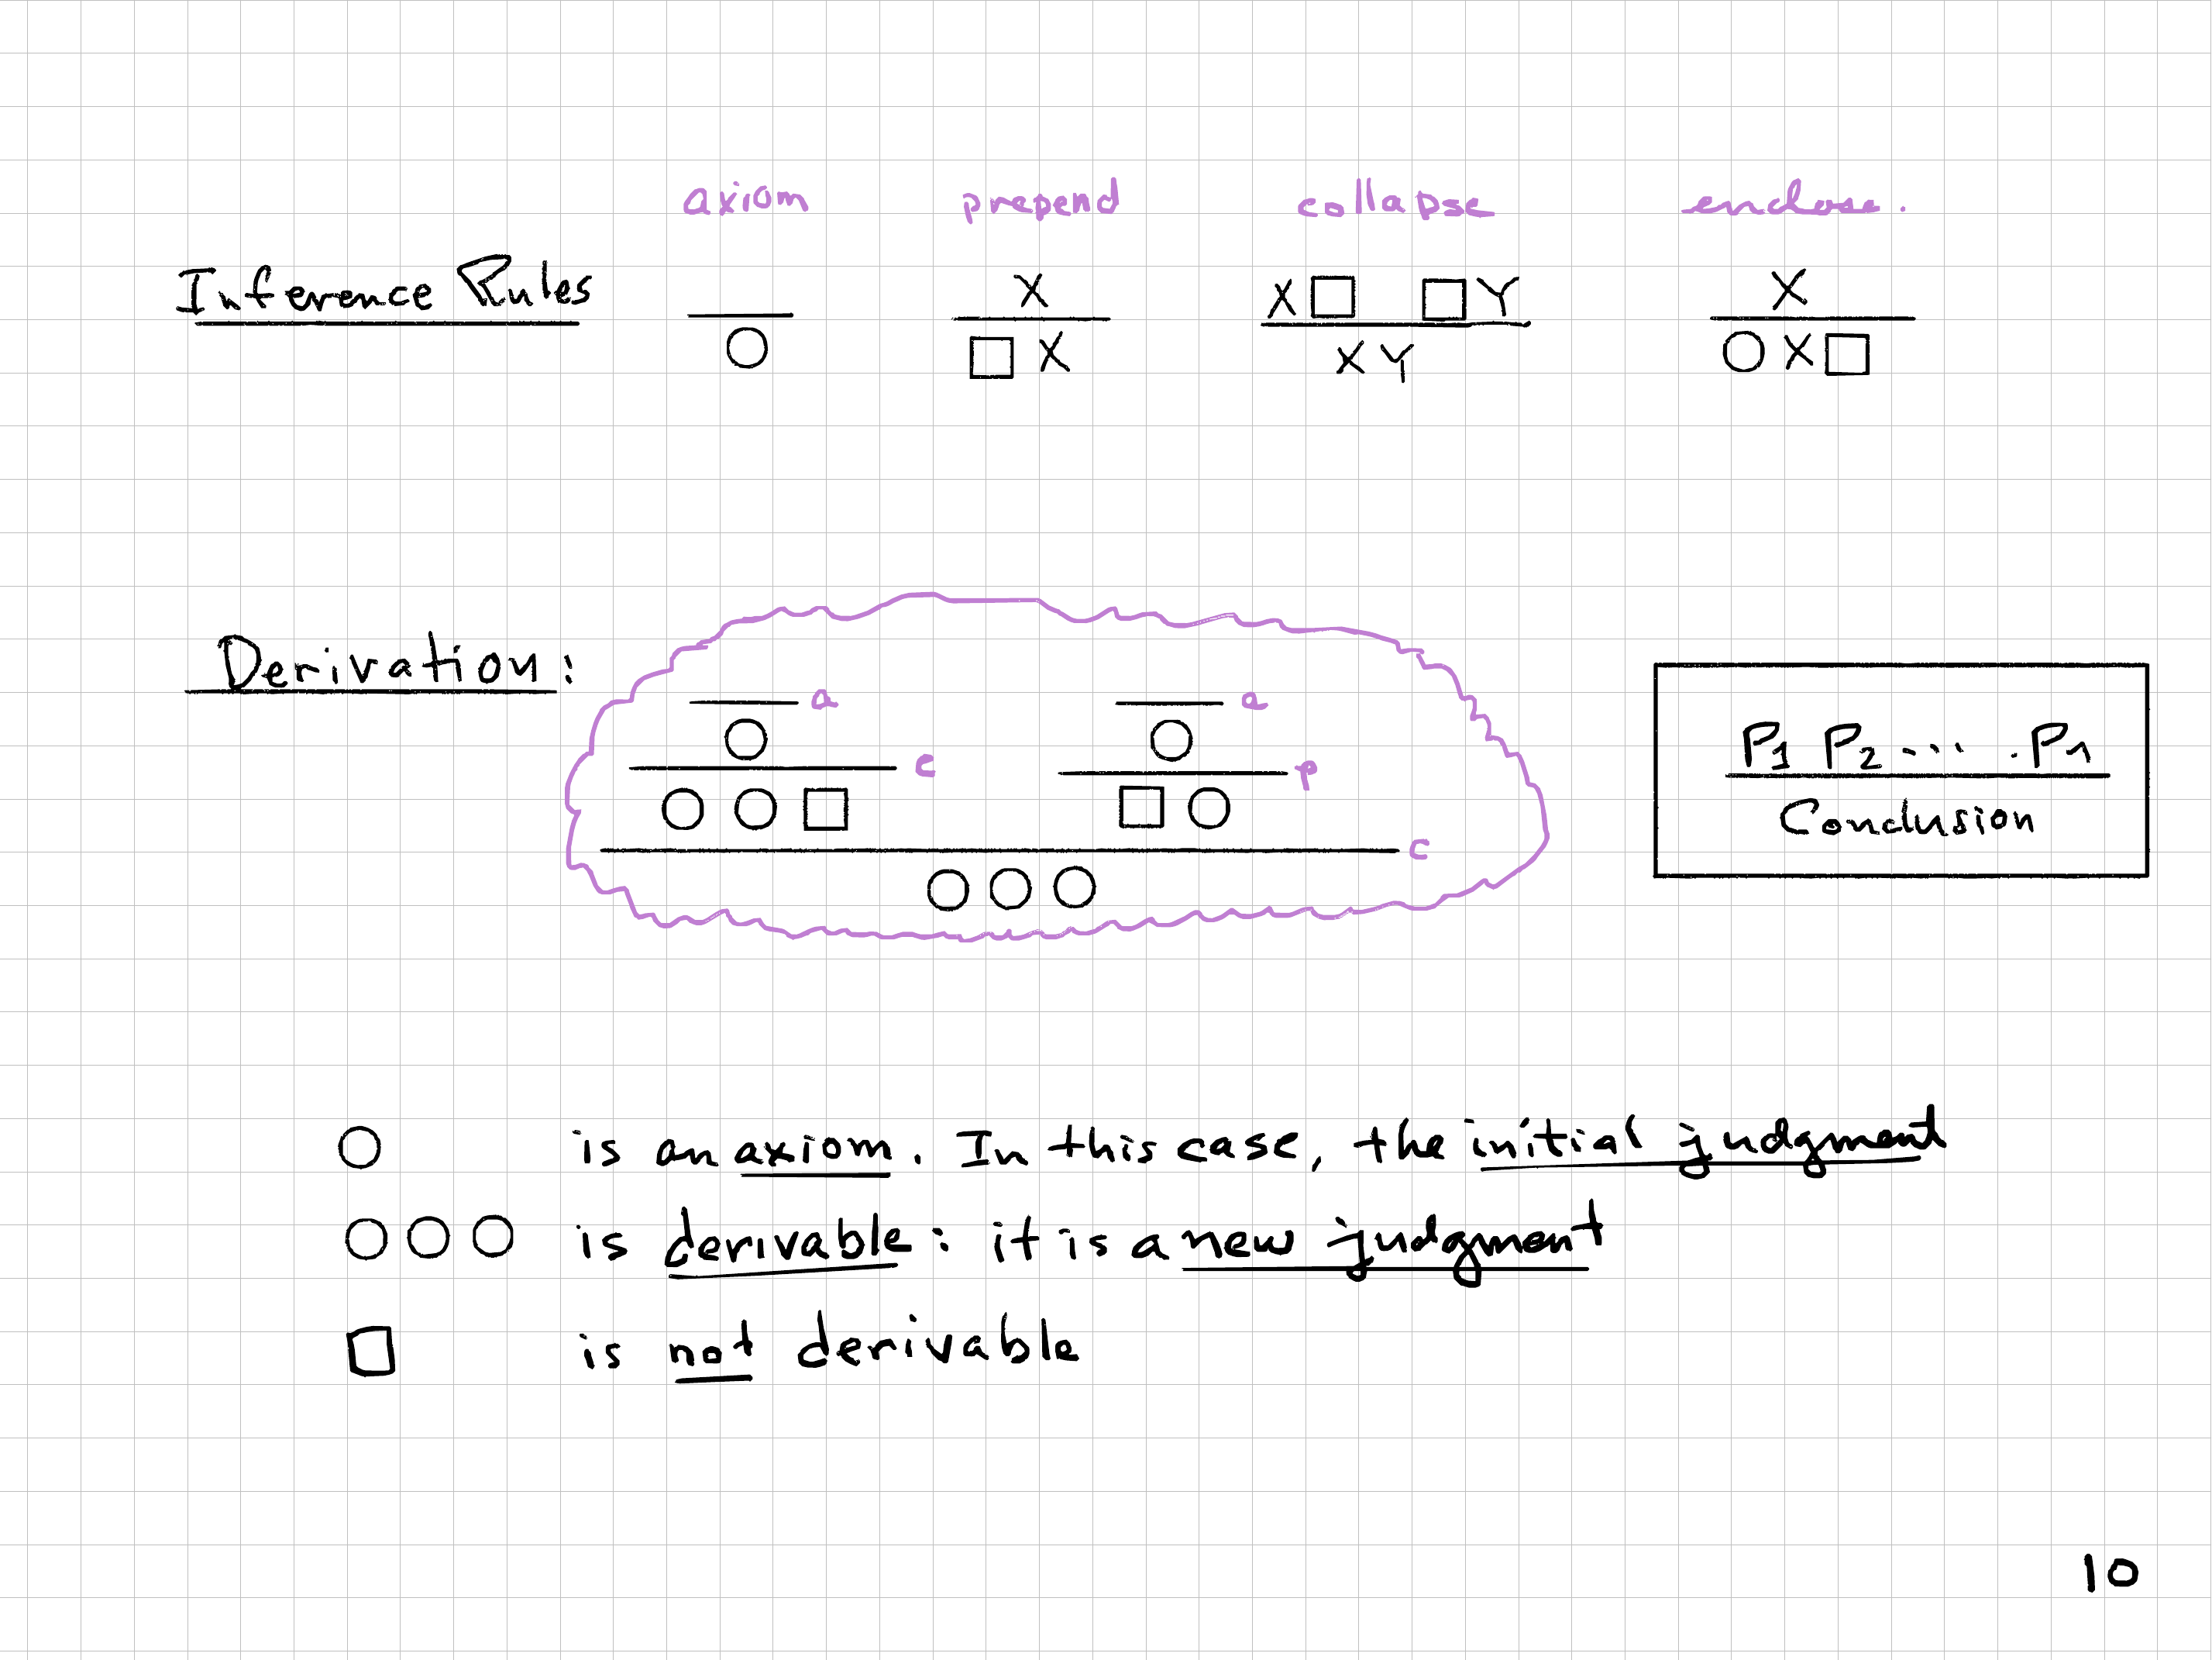 axiom prepend collapse enclose.
Inference Rules
X X□ □Y X
○ □X XY ○X□
Derivation:
a a
○ ○
e p
○○□ □○
c
○○○
P1 P2 ... . Pn
Conclusion
○ is an axiom. In this case, the initial judgment
○○○ is derivable: it is a new judgment
□ is not derivable
10